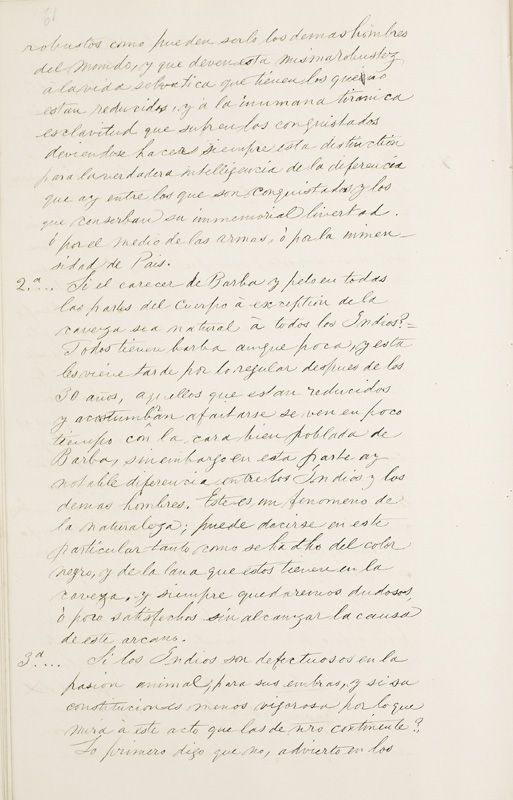 61
robustos como pueden serlo los demas hombres
del Mundo, y que deven esta misma robustez
à la vida selvatica que tienen los que no
estan reducidos, y à la inumana tiranica
esclavitud que sufren los conquistados
deviendose hacer siempre esta distinction
para la verdadera intelligencia de la diferencia
que ay entre los que son conquistados y los
que conserban su immemorial livertad.
ò por el medio de las armas, ò por la inmen-
sidad de Pais.
2.ª... Si el carecer de Barba y pelo en todas
las partes del Cuerpo à exception de la
caveza sea natural à todos los Indios?=
Todos tienen barba aunque poca, y esta
les viene tarde por lo regular despues de los
30 años, aquellos que estan reducidos
y acostumbran afaitarse se ven en poco
tiempo con la cara bien poblada de
Barba, sin embargo en esta parte ay
notable diferencia entre los Indios y los
demas hombres. Este es un fenomeno de
la naturaleza; puede decirse en este
particular tanto como se ha dho del color
negro, y de la lana que estos tienen en la
caveza, y siempre quedaremos dudosos,
ò poco satisfechos sin alcanzar la causa
de este arcano.
3.ª... Si los Indios son defectuosos en la
pasion animal, para sus embras, y si su
constitucion es menos vigorosa por lo que
mira à este acto que las de nro continente?
Lo primero digo que no, advierto en los